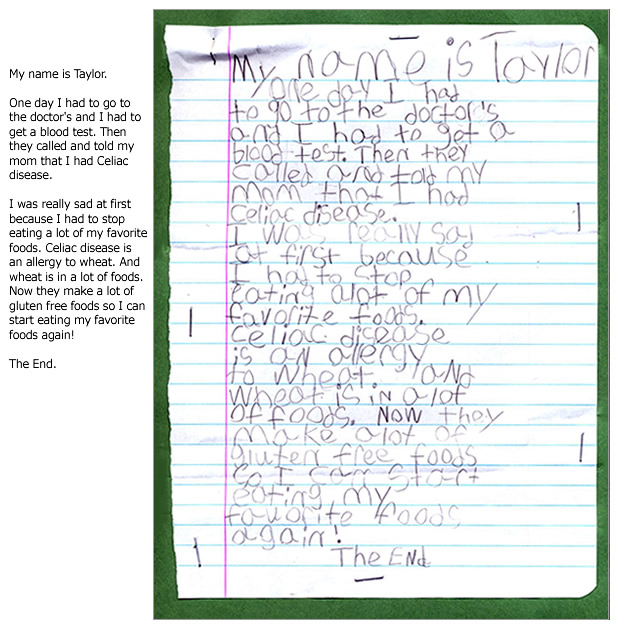 My name is Taylor.
One day I had to go to
the doctor's and I had to
get a blood test. Then
they called and told my
mom that I had Celiac
disease.
I was really sad at first
because I had to stop
eating a lot of my favorite
foods. Celiac disease is
an allergy to wheat. And
wheat is in a lot of foods.
Now they make a lot of
gluten free foods so I can
start eating my favorite
foods again!
The End.
My name is Taylor
One day I had
to go to the doctor's
and I had to get a
blood test. Then they
called and told my
mom that I had
Celiac disease.
I was really sad
at first because
I had to stop
eating alot of my
favorite foods.
Celiac disease
is an allergy
to wheat. and
wheat is in a lot
of foods. Now they
make alot of
gluten free foods
so I can start
eating my
favorite foods
again!
The End